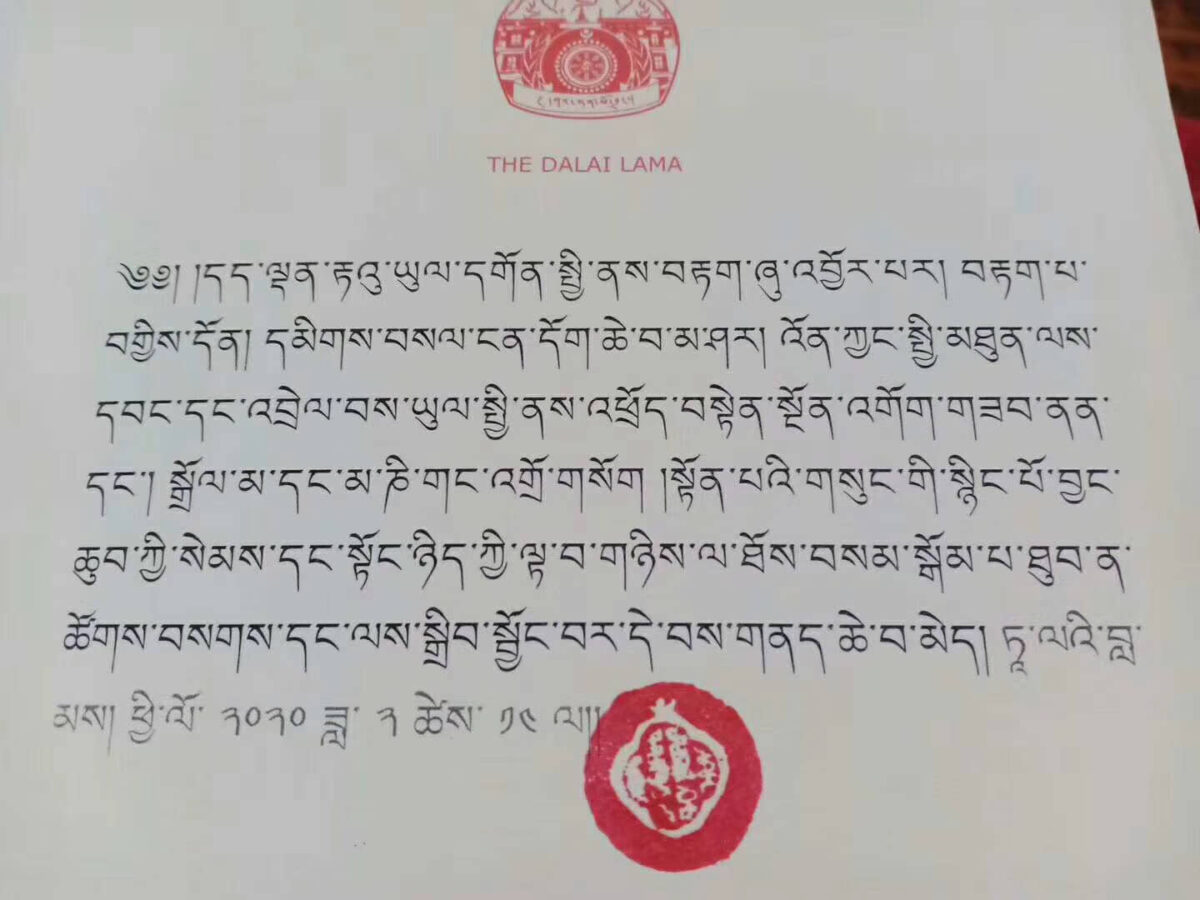 THE DALAI LAMA
༄༅། །དད་ལྡན་རྟའུ་ཡུལ་དགོན་སྤྱི་ནས་བརྟག་ཞུ་འབྱོར་པར། བརྟག་པ་
བགྱིས་དོན། དམིགས་བསལ་ངན་དོག་ཆེ་བ་མ་ཤར། འོན་ཀྱང་སྤྱི་མཐུན་ལས་
དབང་དང་འབྲེལ་བས་ཡུལ་སྤྱི་ནས་འཕྲོད་བསྟེན་སྔོན་འགོག་གཟབ་ནན་
དང་། སྒྲོལ་མ་དང་མ་ཎི་གང་འགྲོ་གསོག །སྟོན་པའི་གསུང་གི་སྙིང་པོ་བྱང་
ཆུབ་ཀྱི་སེམས་དང་སྟོང་ཉིད་ཀྱི་ལྟ་བ་གཉིས་ལ་ཐོས་བསམ་སྒོམ་པ་ཐུབ་ན་
ཚོགས་བསགས་དང་ལས་སྒྲིབ་སྦྱོང་བར་དེ་བས་གནད་ཆེ་བ་མེད། ཏཱ་ལའི་བླ་
མས། ཕྱི་ལོ་ ༢༠༢༠ ཟླ་ ༢ ཚེས་ ༡༩ ལ།།